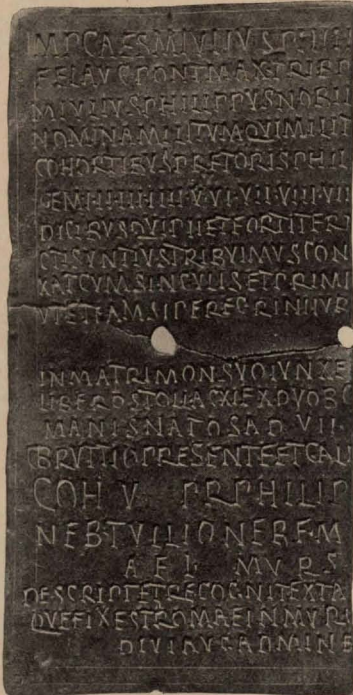 IMP CAES M IVLIVS PHILI
FEL AVG PONT MAX TRIB P
M IVLIVS PHILIPPVS NOBIL
NOMINA MILITVM QVI MILIT
COHORTIBVS PRETORIS PHIL
GEM I II III IIII V VI VII VIII VII
DICIBVS QVI PIE ET FORTITER
CTI SVNT IVS TRIBVIMVS CON
XAT CVM SINGVLIS ET PRIMI
VT ETEAM SI PEREGRINI IVR
IN MATRIMON SVO IVNXE
MANIS NATOS A D VII
C BRVTTIO PRESENTE ET C AL
COH V PR PHILIP
NEB TVLLIO NERE M
AEL MVRS
DESCRIPT ET RECOGNIT EX TA
QVE FIX EST ROMAE IN MVR
DIVI AVG AD MINE